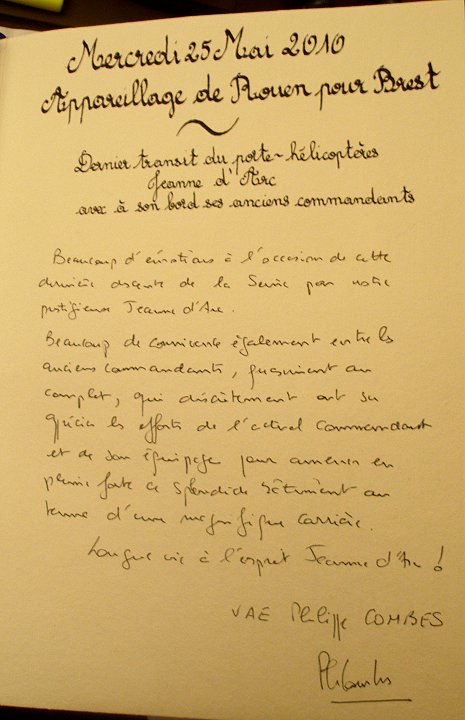 Mercredi 25 Mai 2010
Appareillage de Rouen pour Brest
Dernier transit du porte-hélicoptères
Jeanne d'Arc
avec à son bord ses anciens commandants
Beaucoup d'émotions à l'occasion de cette
dernière descente de la Seine par notre
prestigieuse Jeanne d'Arc.
Beaucoup de connivence également entre les
anciens commandants, quasiment au
complet, qui discrètement ont su
apprécier les efforts de l'actuel Commandant
et de son équipage pour amener en
pleine forme ce splendide bâtiment au
terme d'une magnifique carrière.
Longue vie à l'esprit Jeanne d'Arc !
VAE Philippe COMBES